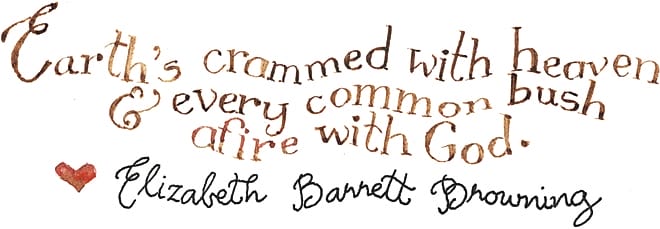 Earth's crammed with heaven
& every common bush
afire with God.
Elizabeth Barrett Browning